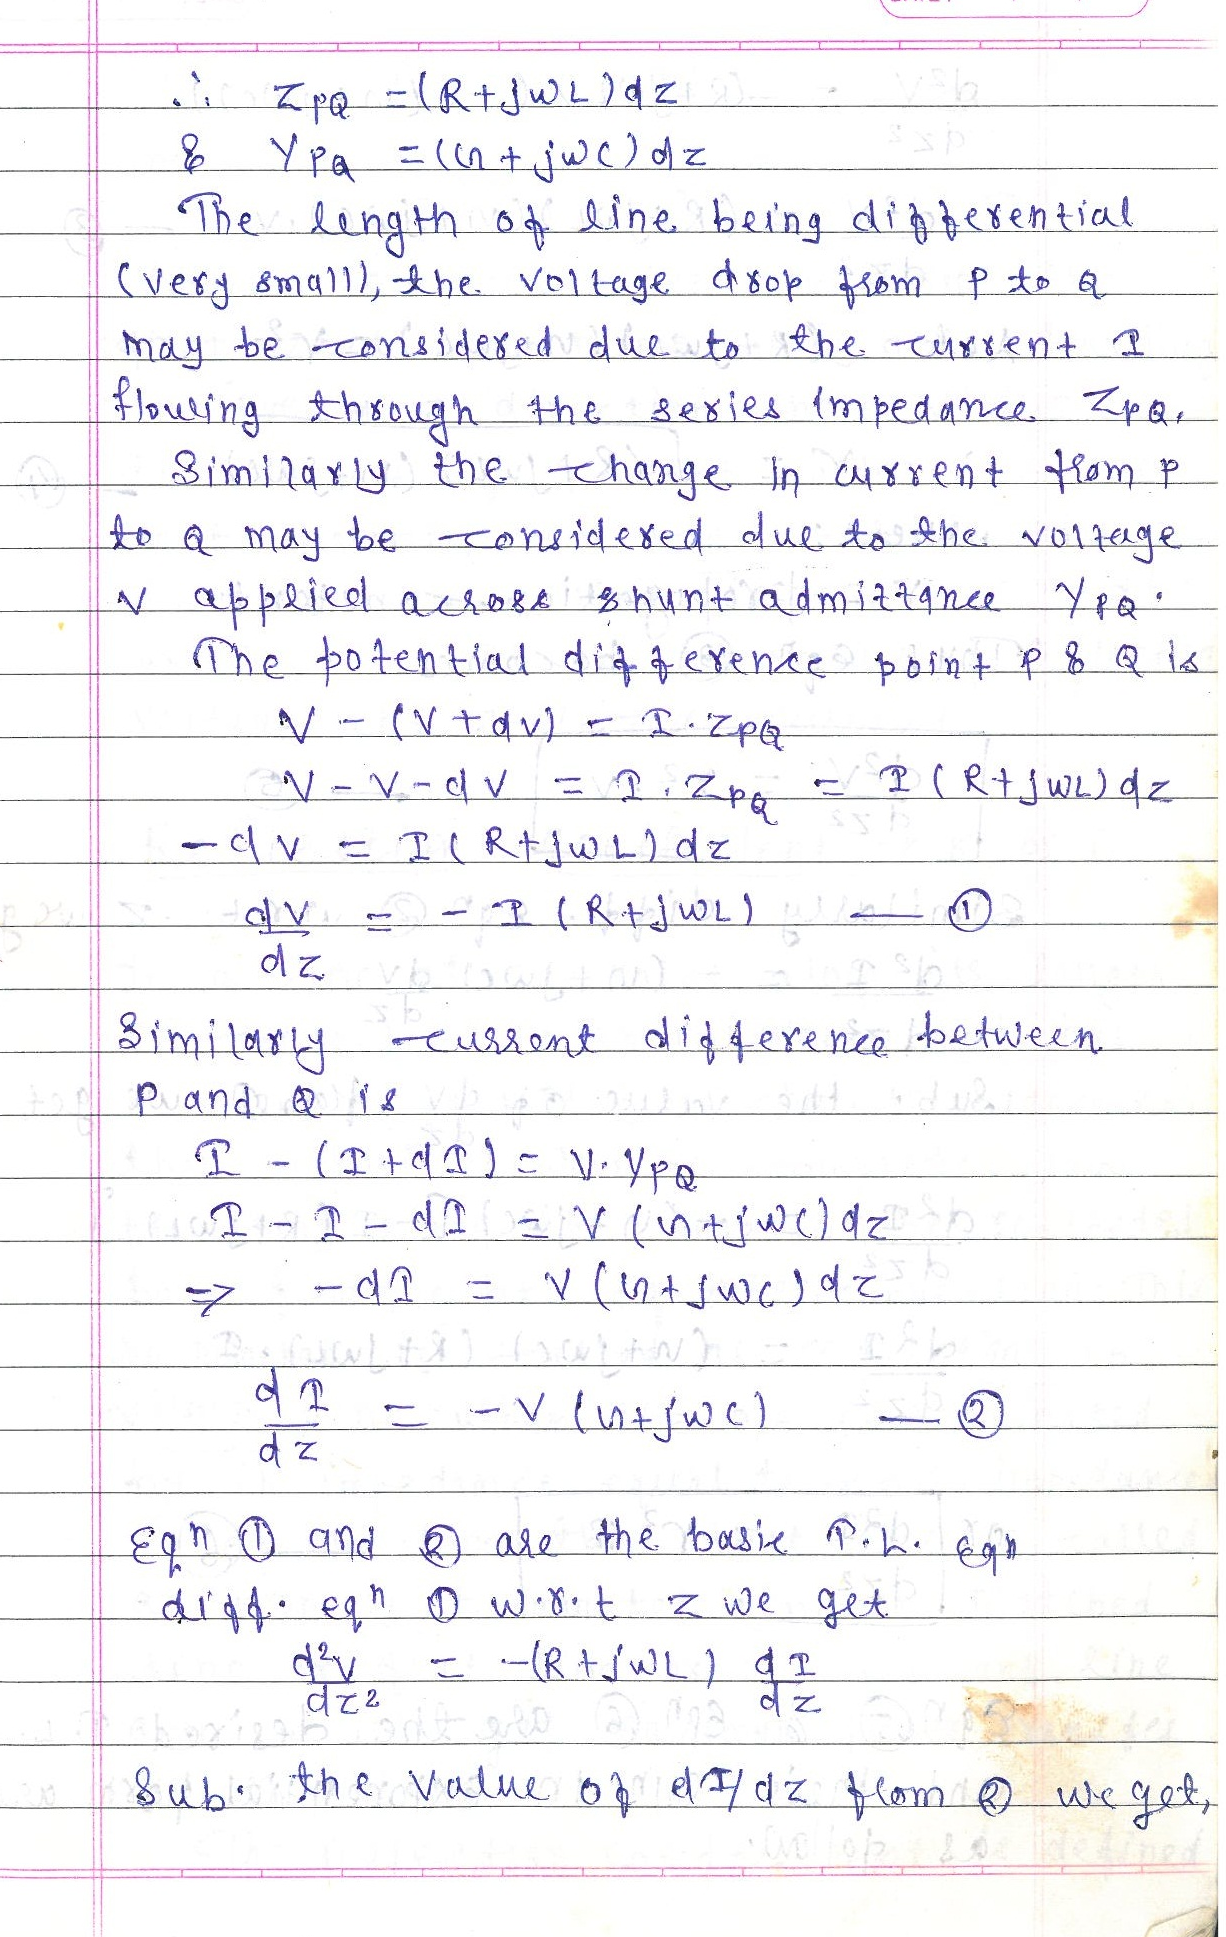 ∴ Z_PQ = (R + jωL) dz
& Y_PQ = (G + jωC) dz
The length of line being differential
(very small), the voltage drop from P to Q
may be considered due to the current I
flowing through the series impedance Z_PQ.
Similarly the change in current from P
to Q may be considered due to the voltage
V applied across shunt admittance Y_PQ.
The potential difference point P & Q is
V - (V + dv) = I · Z_PQ
V - V - dV = I · Z_PQ = I (R + jωL) dz
- dV = I (R + jωL) dz
dV/dz = - I (R + jωL) — ①
Similarly current difference between
P and Q is
I - (I + dI) = V · Y_PQ
I - I - dI = V (G + jωC) dz
⇒ - dI = V (G + jωC) dz
dI/dz = - V (G + jωC) — ②
Eqn ① and ② are the basic T.L. Eqn
diff. eqn ① w.r.t z we get
d²V/dz² = - (R + jωL) dI/dz
Sub. the value of dI/dz from ② we get,